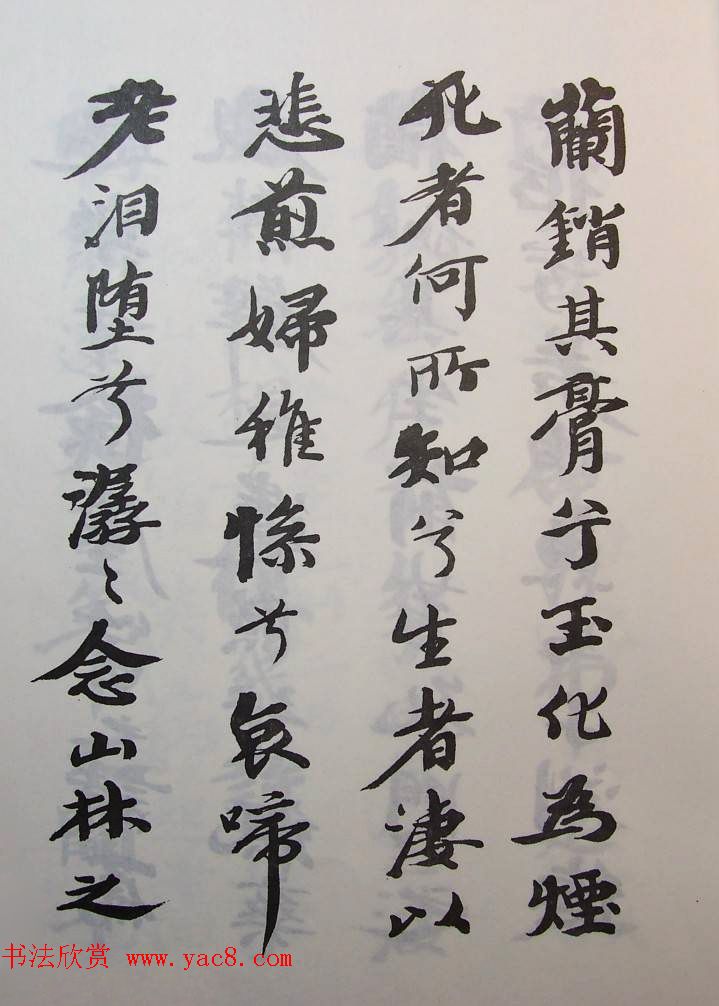 蘭銷其膏兮玉化為煙
死者何所知兮生者凄以
悲煎婦稚惸兮哀啼
老泪堕兮潺〻念山林之
书法欣赏 www.yac8.com